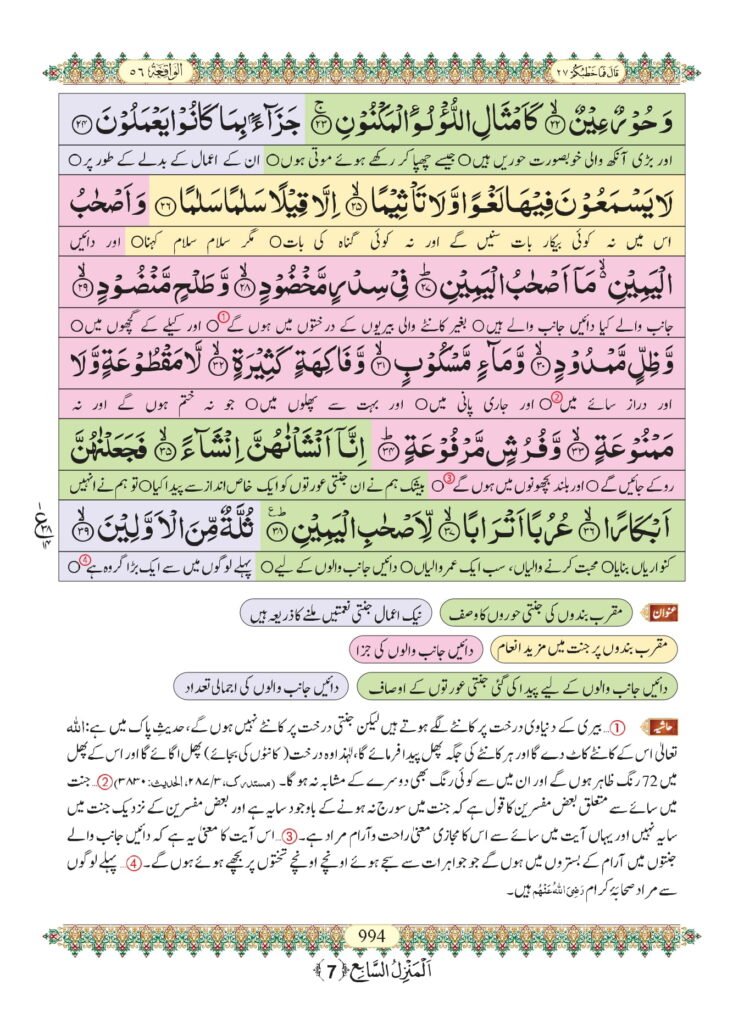 قَالَ فَمَا خَطْبُكُمْ ٢٧
اَلْوَاقِعَة ٥٦
وَ حُوْرٌ عِیْنٌۙ۝۲۲ كَاَمْثَالِ اللُّؤْلُوَٴ الْمَكْنُوْنِۚ۝۲۳ جَزَآءًۢ بِمَا كَانُوْا یَعْمَلُوْنَ۝۲۴
اور بڑی آنکھ والی خوبصورت حوریں ہیں○ جیسے چھپا کر رکھے ہوئے موتی ہوں○ ان کے اعمال کے بدلے کے طور پر○
لَا یَسْمَعُوْنَ فِیْهَا لَغْوًا وَّ لَا تَاْثِیْمًاۙ۝۲۵ اِلَّا قِیْلًا سَلٰمًا سَلٰمًا۝۲۶ وَ اَصْحٰبُ
اس میں نہ کوئی بیکار بات سنیں گے اور نہ کوئی گناہ کی بات○ مگر سلام سلام کہنا○ اور دائیں
الْیَمِیْنِ ﳔ مَاۤ اَصْحٰبُ الْیَمِیْنِؕ۝۲۷ فِیْ سِدْرٍ مَّخْضُوْدٍۙ۝۲۸ وَّ طَلْحٍ مَّنْضُوْدٍۙ۝۲۹
جانب والے کیا دائیں جانب والے ہیں○ بغیر کانٹے والی بیریوں کے درختوں میں ہوں گے①○ اور کیلے کے گچھوں میں○
وَّ ظِلٍّ مَّمْدُوْدٍۙ۝۳۰ وَّ مَآءٍ مَّسْكُوْبٍۙ۝۳۱ وَّ فَاكِهَةٍ كَثِیْرَةٍۙ۝۳۲ لَّا مَقْطُوْعَةٍ وَّ لَا
اور دراز سائے میں②○ اور جاری پانی میں○ اور بہت سے پھلوں میں○ جو نہ ختم ہوں گے اور نہ
مَمْنُوْعَةٍۙ۝۳۳ وَّ فُرُشٍ مَّرْفُوْعَةٍؕ۝۳۴ اِنَّاۤ اَنْشَاْنٰهُنَّ اِنْشَآءًۙ۝۳۵ فَجَعَلْنٰهُنَّ
روکے جائیں گے○ اور بلند بچھونوں میں ہوں گے③○ بیشک ہم نے ان جنتی عورتوں کو ایک خاص انداز سے پیدا کیا○ تو ہم نے انہیں
اَبْكَارًاۙ۝۳۶ عُرُبًا اَتْرَابًاۙ۝۳۷ لِّاَصْحٰبِ الْیَمِیْنِؕ۠۝۳۸ ثُلَّةٌ مِّنَ الْاَوَّلِیْنَۙ۝۳۹
کنواریاں بنایا○ محبت کرنے والیاں، سب ایک عمر والیاں○ دائیں جانب والوں کے لیے○ پہلے لوگوں میں سے ایک بڑا گروہ ہے④○
عنوان مقرب بندوں کی جنتی حوروں کا وصف نیک اعمال جنتی نعمتیں ملنے کا ذریعہ ہیں
مقرب بندوں پر جنت میں مزید انعام دائیں جانب والوں کی جزا
دائیں جانب والوں کے لیے پیدا کی گئی جنتی عورتوں کے اوصاف دائیں جانب والوں کی اجمالی تعداد
حاشیہ ①... بیری کے دنیاوی درخت پر کانٹے لگے ہوتے ہیں لیکن جنتی درخت پر کانٹے نہیں ہوں گے، حدیثِ پاک میں ہے: اللہ
تعالیٰ اس کے کانٹے کاٹ دے گا اور ہر کانٹے کی جگہ پھل پیدا فرمائے گا، لہٰذا وہ درخت (کانٹوں کی بجائے) پھل اگائے گا اور اس کے پھل
میں 72 رنگ ظاہر ہوں گے اور ان میں سے کوئی رنگ بھی دوسرے کے مشابہ نہ ہو گا۔ (مستدرک، ۲۸۷/۳، الحدیث: ۳۸۳۰) ②... جنت
میں سائے سے متعلق بعض مفسرین کا قول ہے کہ جنت میں سورج نہ ہونے کے باوجود سایہ ہے اور بعض مفسرین کے نزدیک جنت میں
سایہ نہیں اور یہاں آیت میں سائے سے اس کا مجازی معنیٰ راحت و آرام مراد ہے۔ ③... اس آیت کا معنیٰ یہ ہے کہ دائیں جانب والے
جنتوں میں آرام کے بستروں میں ہوں گے جو جواہرات سے سجے ہوئے اونچے اونچے تختوں پر بچھے ہوئے ہوں گے۔ ④... پہلے لوگوں
سے مراد صحابۂ کرام رَضِیَ اللہُ عَنْہُم ہیں۔
994
اَلْمَنْزِلُ السَّابِع ﴿7﴾